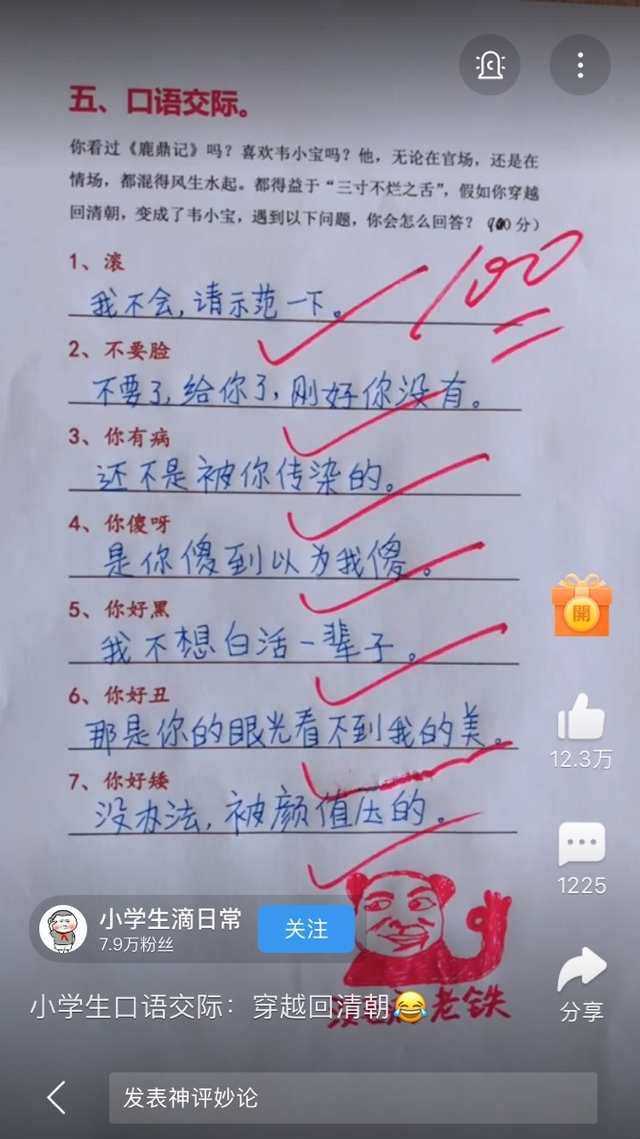 五、口语交际。
你看过《鹿鼎记》吗？喜欢韦小宝吗？他，无论在官场，还是在
情场，都混得风生水起。都得益于“三寸不烂之舌”，假如你穿越
回清朝，变成了韦小宝，遇到以下问题，你会怎么回答？（100分）
100
1、滚
我不会，请示范一下。
2、不要脸
不要了，给你了，刚好你没有。
3、你有病
还不是被你传染的。
4、你傻呀
是你傻到以为我傻。
5、你好黑
我不想白活一辈子。
6、你好丑
那是你的眼光看不到我的美。
7、你好矮
没办法，被颜值压的。
開
12.3万
1225
分享
小学生滴日常
7.9万粉丝
关注
老铁
小学生口语交际：穿越回清朝😂
发表神评妙论